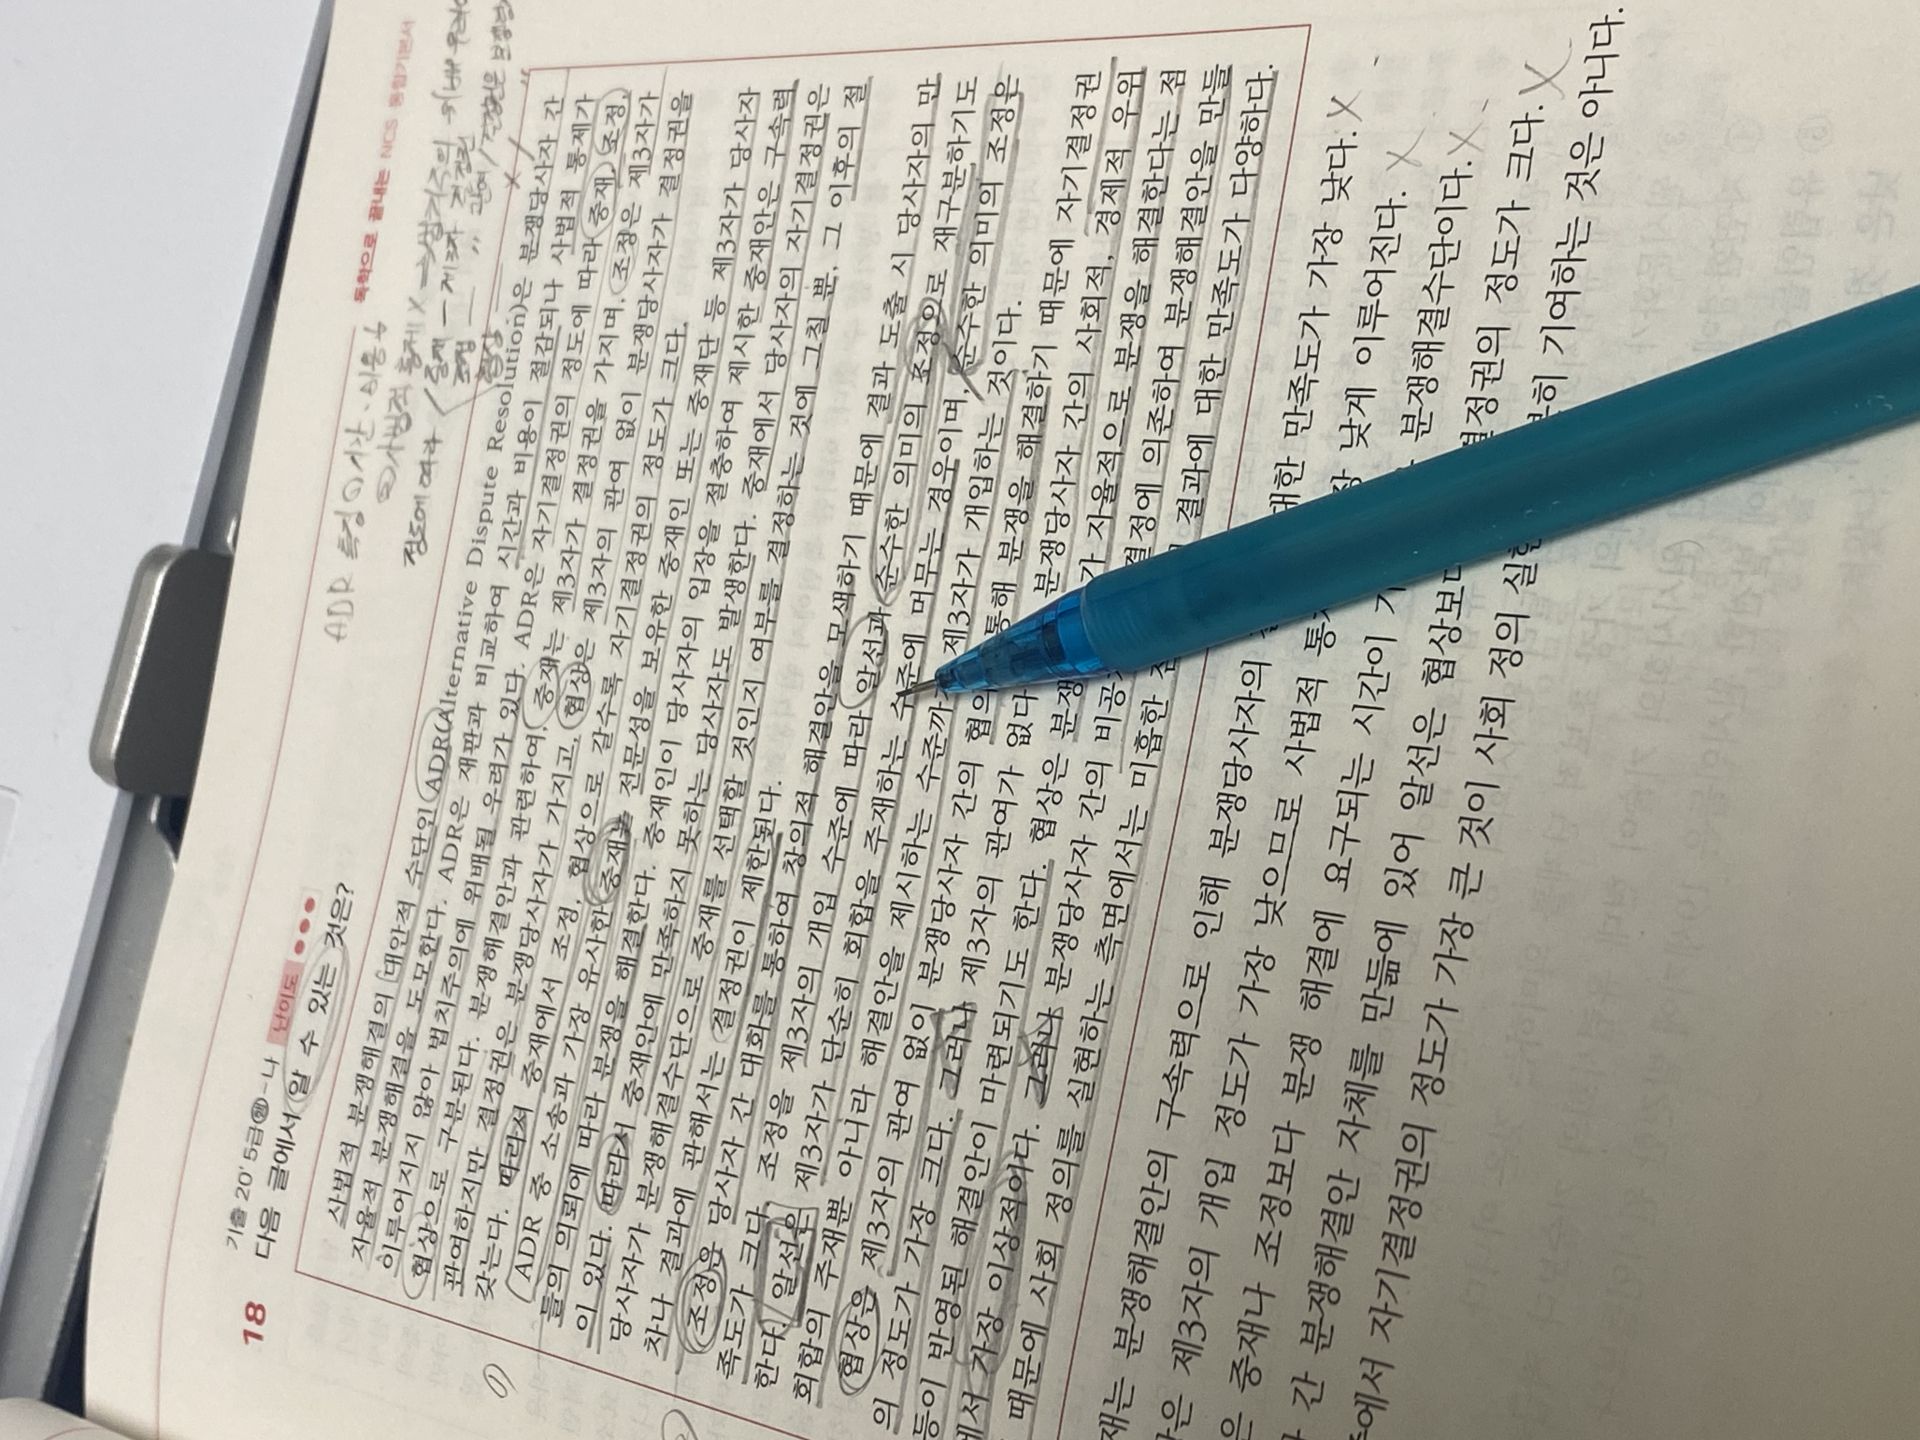 독학으로 끝내는 NCS 통합기본서
18
기출 20' 5급㉯-나 난이도
다음 글에서 알 수 있는 것은?
ADR 특징
사법적 분쟁해결의 대안적 수단인 ADR(Alternative Dispute Resolution)은 분쟁당사자 간
자율적 분쟁해결을 도모한다. ADR은 재판과 비교하여 시간과 비용이 절감되나 사법적 통제가
이루어지지 않아 법치주의에 위배될 우려가 있다. ADR은 자기결정권의 정도에 따라 중재, 조정,
협상으로 구분된다. 분쟁해결안과 관련하여, 중재는 제3자가 결정권을 가지며, 조정은 제3자가
관여하지만 결정권은 분쟁당사자가 가지고, 협상은 제3자의 관여 없이 분쟁당사자가 결정권을
갖는다. 따라서 중재에서 조정, 협상으로 갈수록 자기결정권의 정도가 크다.
ADR 중 소송과 가장 유사한 중재는 전문성을 보유한 중재인 또는 중재단 등 제3자가 당사자
들의 의뢰에 따라 분쟁을 해결한다. 중재인이 당사자의 입장을 절충하여 제시한 중재안은 구속력
이 있다. 따라서 중재안에 만족하지 못하는 당사자도 발생한다. 중재에서 당사자의 자기결정권은
당사자가 분쟁해결수단으로 중재를 선택할 것인지 여부를 결정하는 것에 그칠 뿐, 그 이후의 절
차나 결과에 관해서는 결정권이 제한된다.
조정은 당사자 간 대화를 통하여 창의적 해결안을 모색하기 때문에 결과 도출 시 당사자의 만
족도가 크다. 조정을 제3자의 개입 수준에 따라 알선과 순수한 의미의 조정으로 재구분하기도
한다. 알선은 제3자가 단순히 회합을 주재하는 수준에 머무는 경우이며, 순수한 의미의 조정은
회합의 주재뿐 아니라 해결안을 제시하는 수준까지 제3자가 개입하는 것이다.
협상은 제3자의 관여 없이 분쟁당사자 간의 협의 통해 분쟁을 해결하기 때문에 자기결정권
의 정도가 가장 크다. 그러나 제3자의 관여가 없다 분쟁당사자 간의 사회적, 경제적 우위
등이 반영된 해결안이 마련되기도 한다. 협상은 분쟁 가 자율적으로 분쟁을 해결한다는 점
에서 가장 이상적이다. 그러나 분쟁당사자 간의 비공 결정에 의존하여 분쟁해결안을 만들
때문에 사회 정의를 실현하는 측면에서는 미흡한 결과에 대한 만족도가 다양하다.
재는 분쟁해결안의 구속력으로 인해 분쟁당사자의 대한 만족도가 가장 낮다.
은 제3자의 개입 정도가 가장 낮으므로 사법적 통 장 낮게 이루어진다.
은 중재나 조정보다 분쟁 해결에 요구되는 시간이 분쟁해결수단이다.
간 분쟁해결안 자체를 만듦에 있어 알선은 협상보다 결정권의 정도가 크다.
에서 자기결정권의 정도가 가장 큰 것이 사회 정의 실 히 기여하는 것은 아니다.